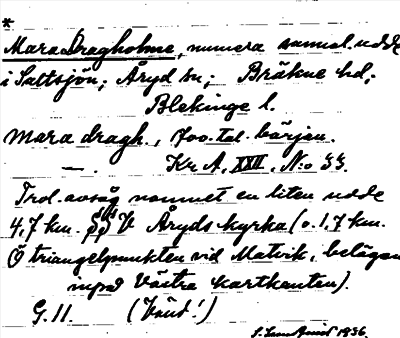 *
Mara Dragholme, numera samml. udde
i Saltsjön; Åryd sn; Bräkne hd;
Blekinge l.
Mara dragh., 700-tal. början.
— . Kr A, XXII, No 33.
Trol. avsåg namnet en liten udde
4,7 km. V Åryds kyrka (o. 1,7 km.
Ö triangelpunkten vid Matvik, belägen
inpå västra kartkanten).
G. 11. (Vänd!)
1936.